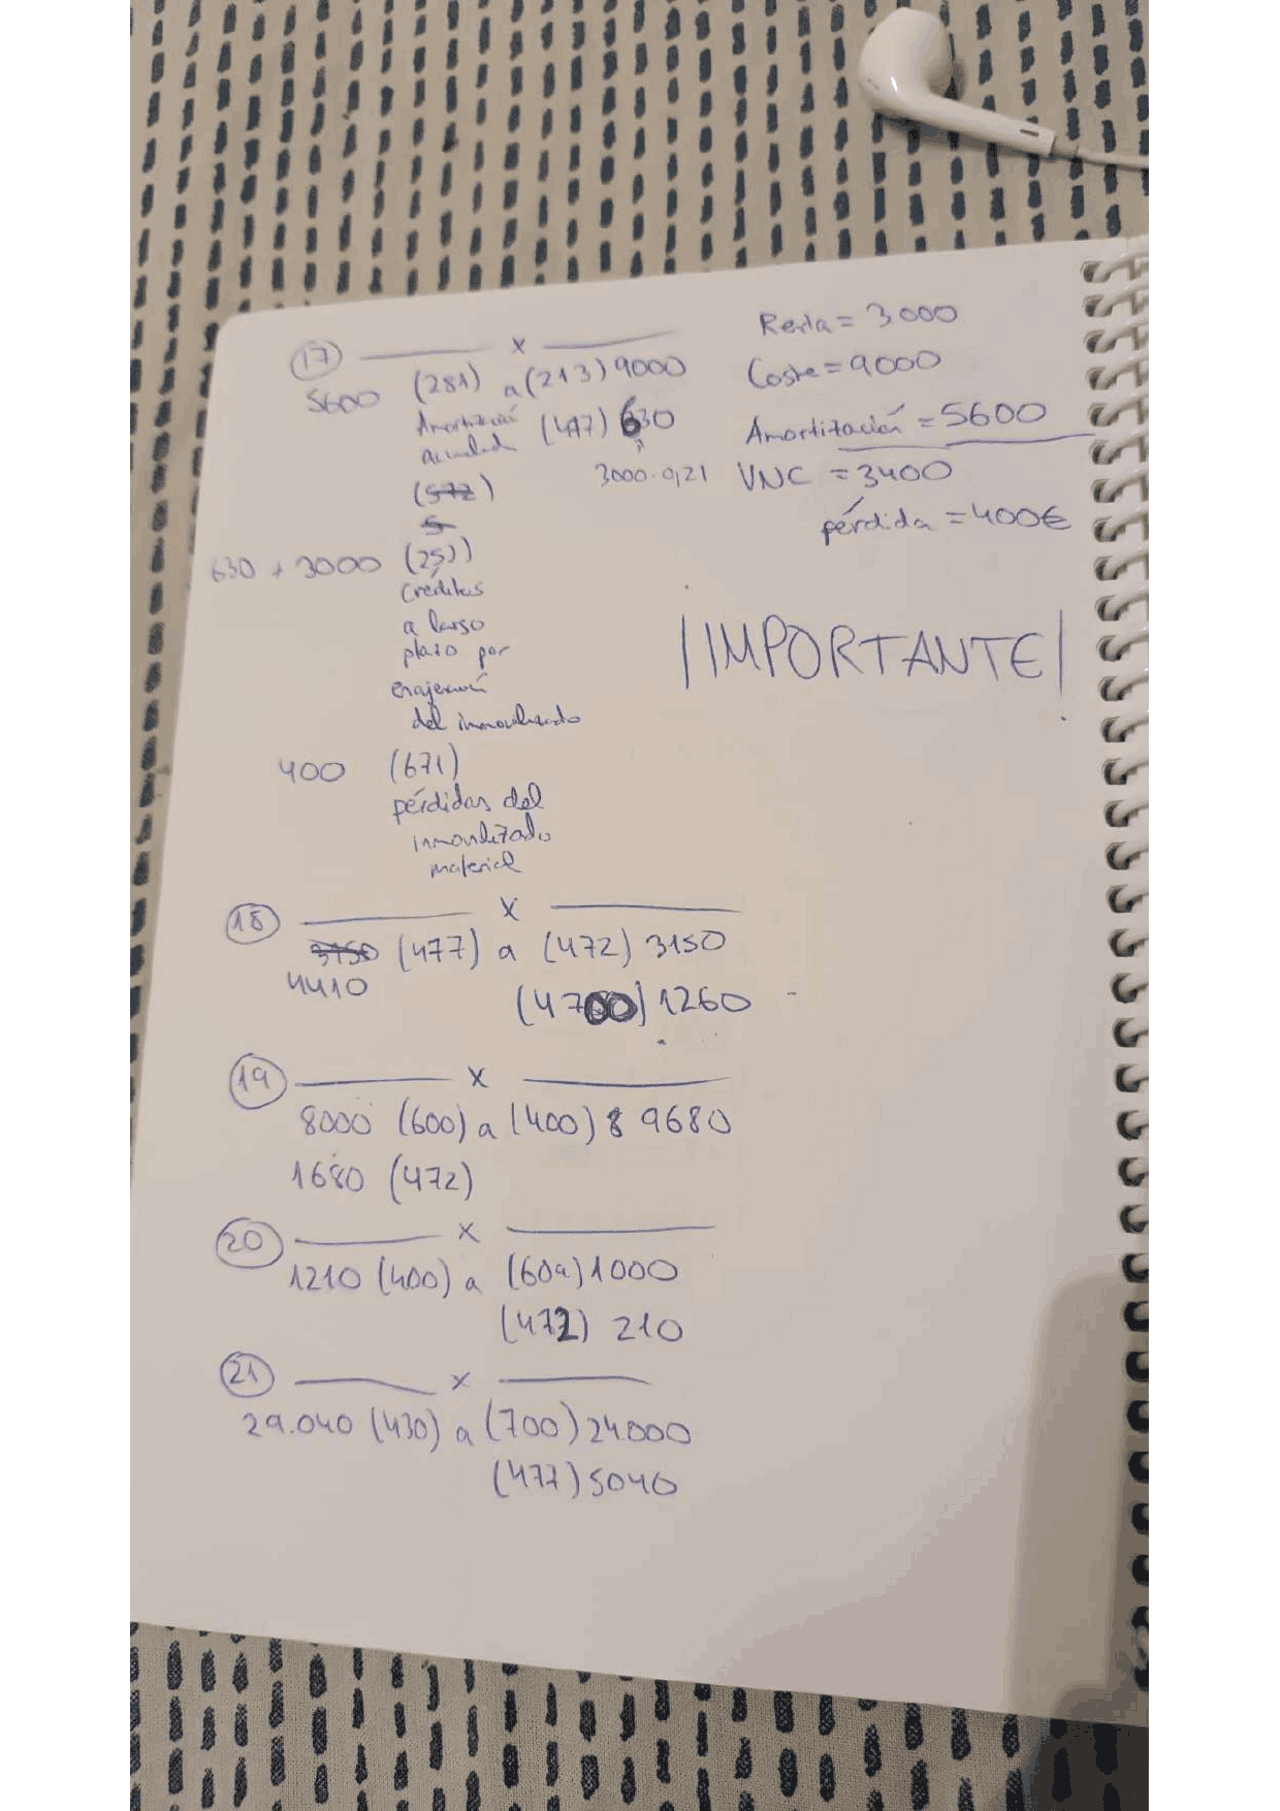 17 x
5600 (281) a (213) 9000
Amortización (477) 630
acumulada
3000·0,21
(572)
5
630 + 3000 (253)
Créditos
a largo
plazo por
enajenación
del inmovilizado
400 (671)
pérdidas del
inmovilizado
material
Resta = 3.000
Coste = 9000
Amortización = 5600
VNC = 3400
pérdida = 400€
¡IMPORTANTE!
18 x
3150 (477) a (472) 3150
4410
(4700) 1260
19 x
8000 (600) a (400) 9680
1680 (472)
20 x
1210 (400) a (609) 1000
(472) 210
21 x
29.040 (430) a (700) 24.000
(477) 5040